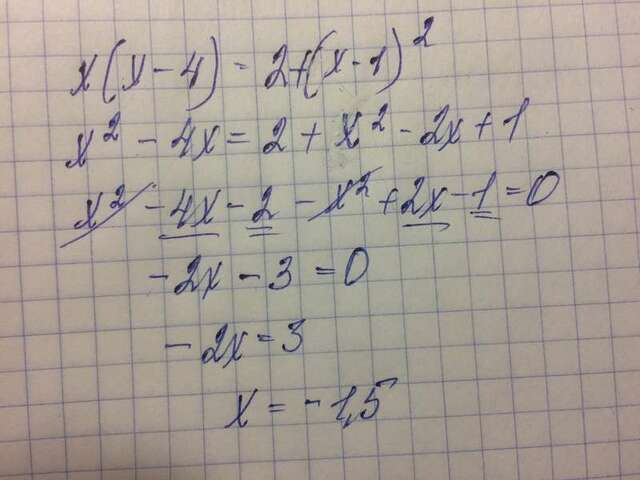 x(x-4) = 2+(x-1)²
x² - 4x = 2 + x² - 2x + 1
x² - 4x - 2 - x² + 2x - 1 = 0
- 2x - 3 = 0
- 2x = 3
x = -1,5